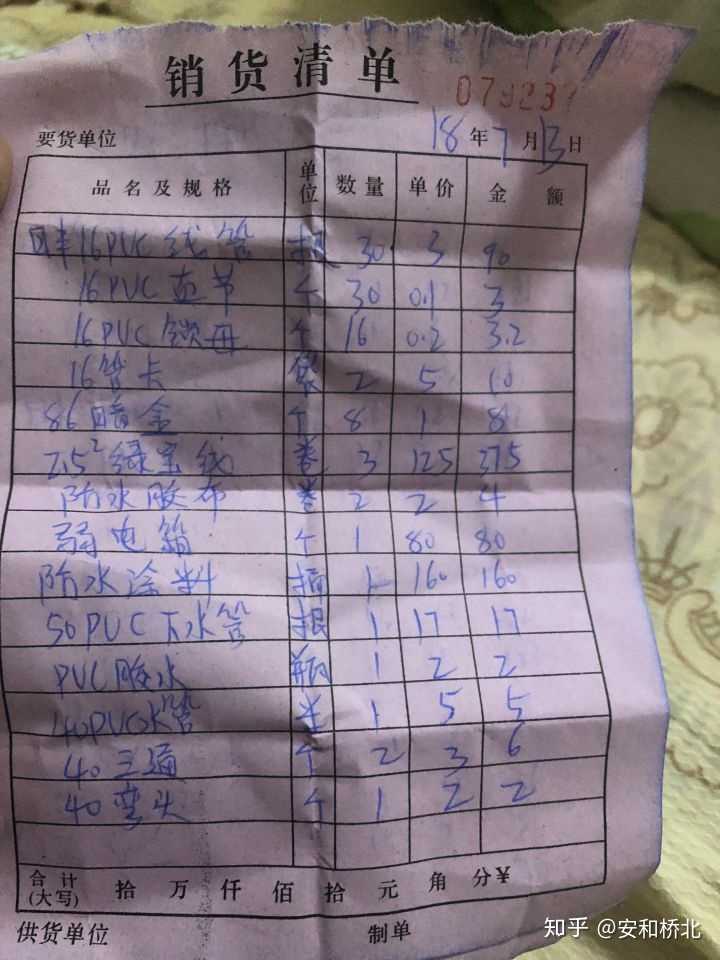 销货清单
079237
要货单位 18年7月13日
品名及规格 单位 数量 单价 金额
16PVC线管 根 30 3 90
16PVC直节 个 30 0.1 3
16PVC锁母 个 16 0.2 3.2
16管卡 袋 2 5 10
86暗盒 个 8 1 8
2.5²绿宝线 卷 3 125 375
防水胶布 卷 2 2 4
弱电箱 个 1 80 80
防水涂料 桶 1 160 160
50PVC下水管 根 1 17 17
PVC胶水 瓶 1 2 2
40PVC水管 米 1 5 5
40三通 个 2 3 6
40弯头 个 1 2 2
合计(大写) 拾 万 仟 佰 拾 元 角 分¥
供货单位 制单
知乎 @安和桥北